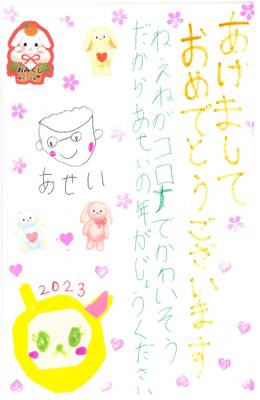 あげまして
おめでとうございます
ねえねがコロナでかわいそう
だからあせいの年がじょうください
おみくじ
あせい
2023